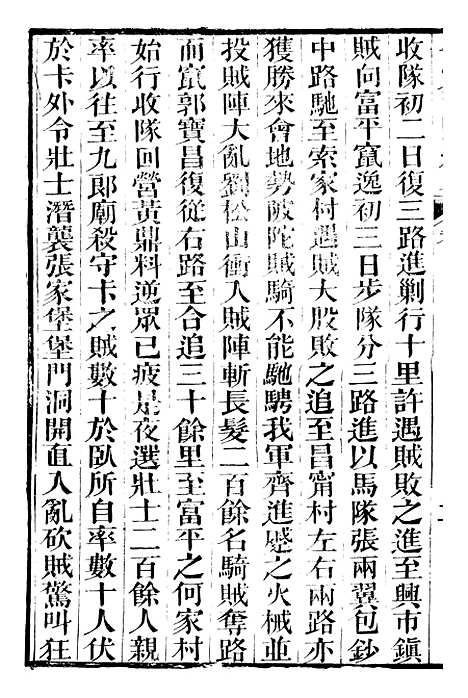 收隊初二日復三路進剿行十里許遇賊敗之進至興市鎮
賊向富平竄逸初三日步隊分三路進以馬隊張兩翼包鈔
中路馳至索家村遇賊大股敗之追至昌甯村左右兩路亦
獲勝來會地勢陂陀賊騎不能馳騁我軍齊進蹙之火械並
投賊陣大亂劉松山衝入賊陣斬長髮二百餘名騎賊奪路
而竄郭寶昌復從右路至合追三十餘里至富平之何家村
始行收隊回營黃鼎料逆眾已疲是夜選壯士二百餘人親
率以往至九郎廟殺守卡之賊數十於臥所自率數十人伏
於卡外令壯士潛襲張家堡堡門洞開直入亂砍賊驚叫狂